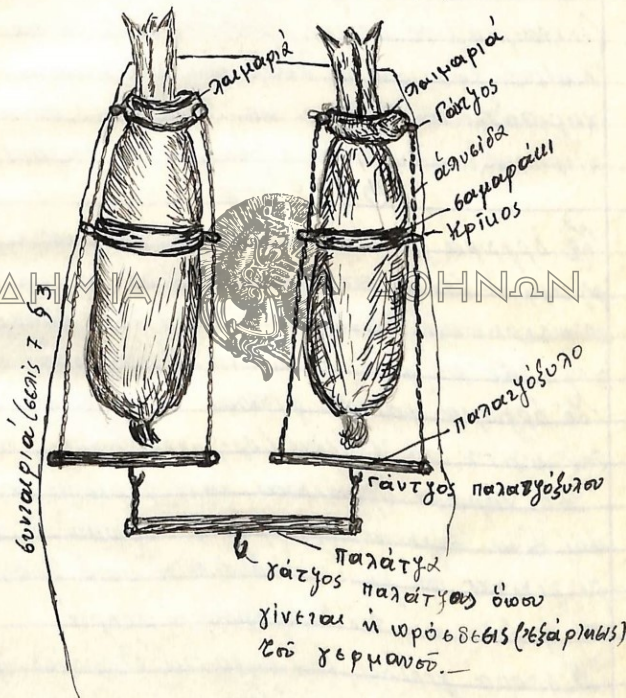 λαιμαριά
λαιμαριά
Γάντζος
ἁλυσίδα
σαμαράκι
κρίκος
ΔΗΜΙΑ ΑΘΗΝΩΝ
συνταιριά (σελίς 7 93
παλατζόξυλο
Γάντζος παλατζόξυλου
παλάτζα
γάτζος παλάτζας ὅπου
γίνεται ἡ πρόσδεσις (ἐξάρτησις)
τοῦ γερμανοῦ.—